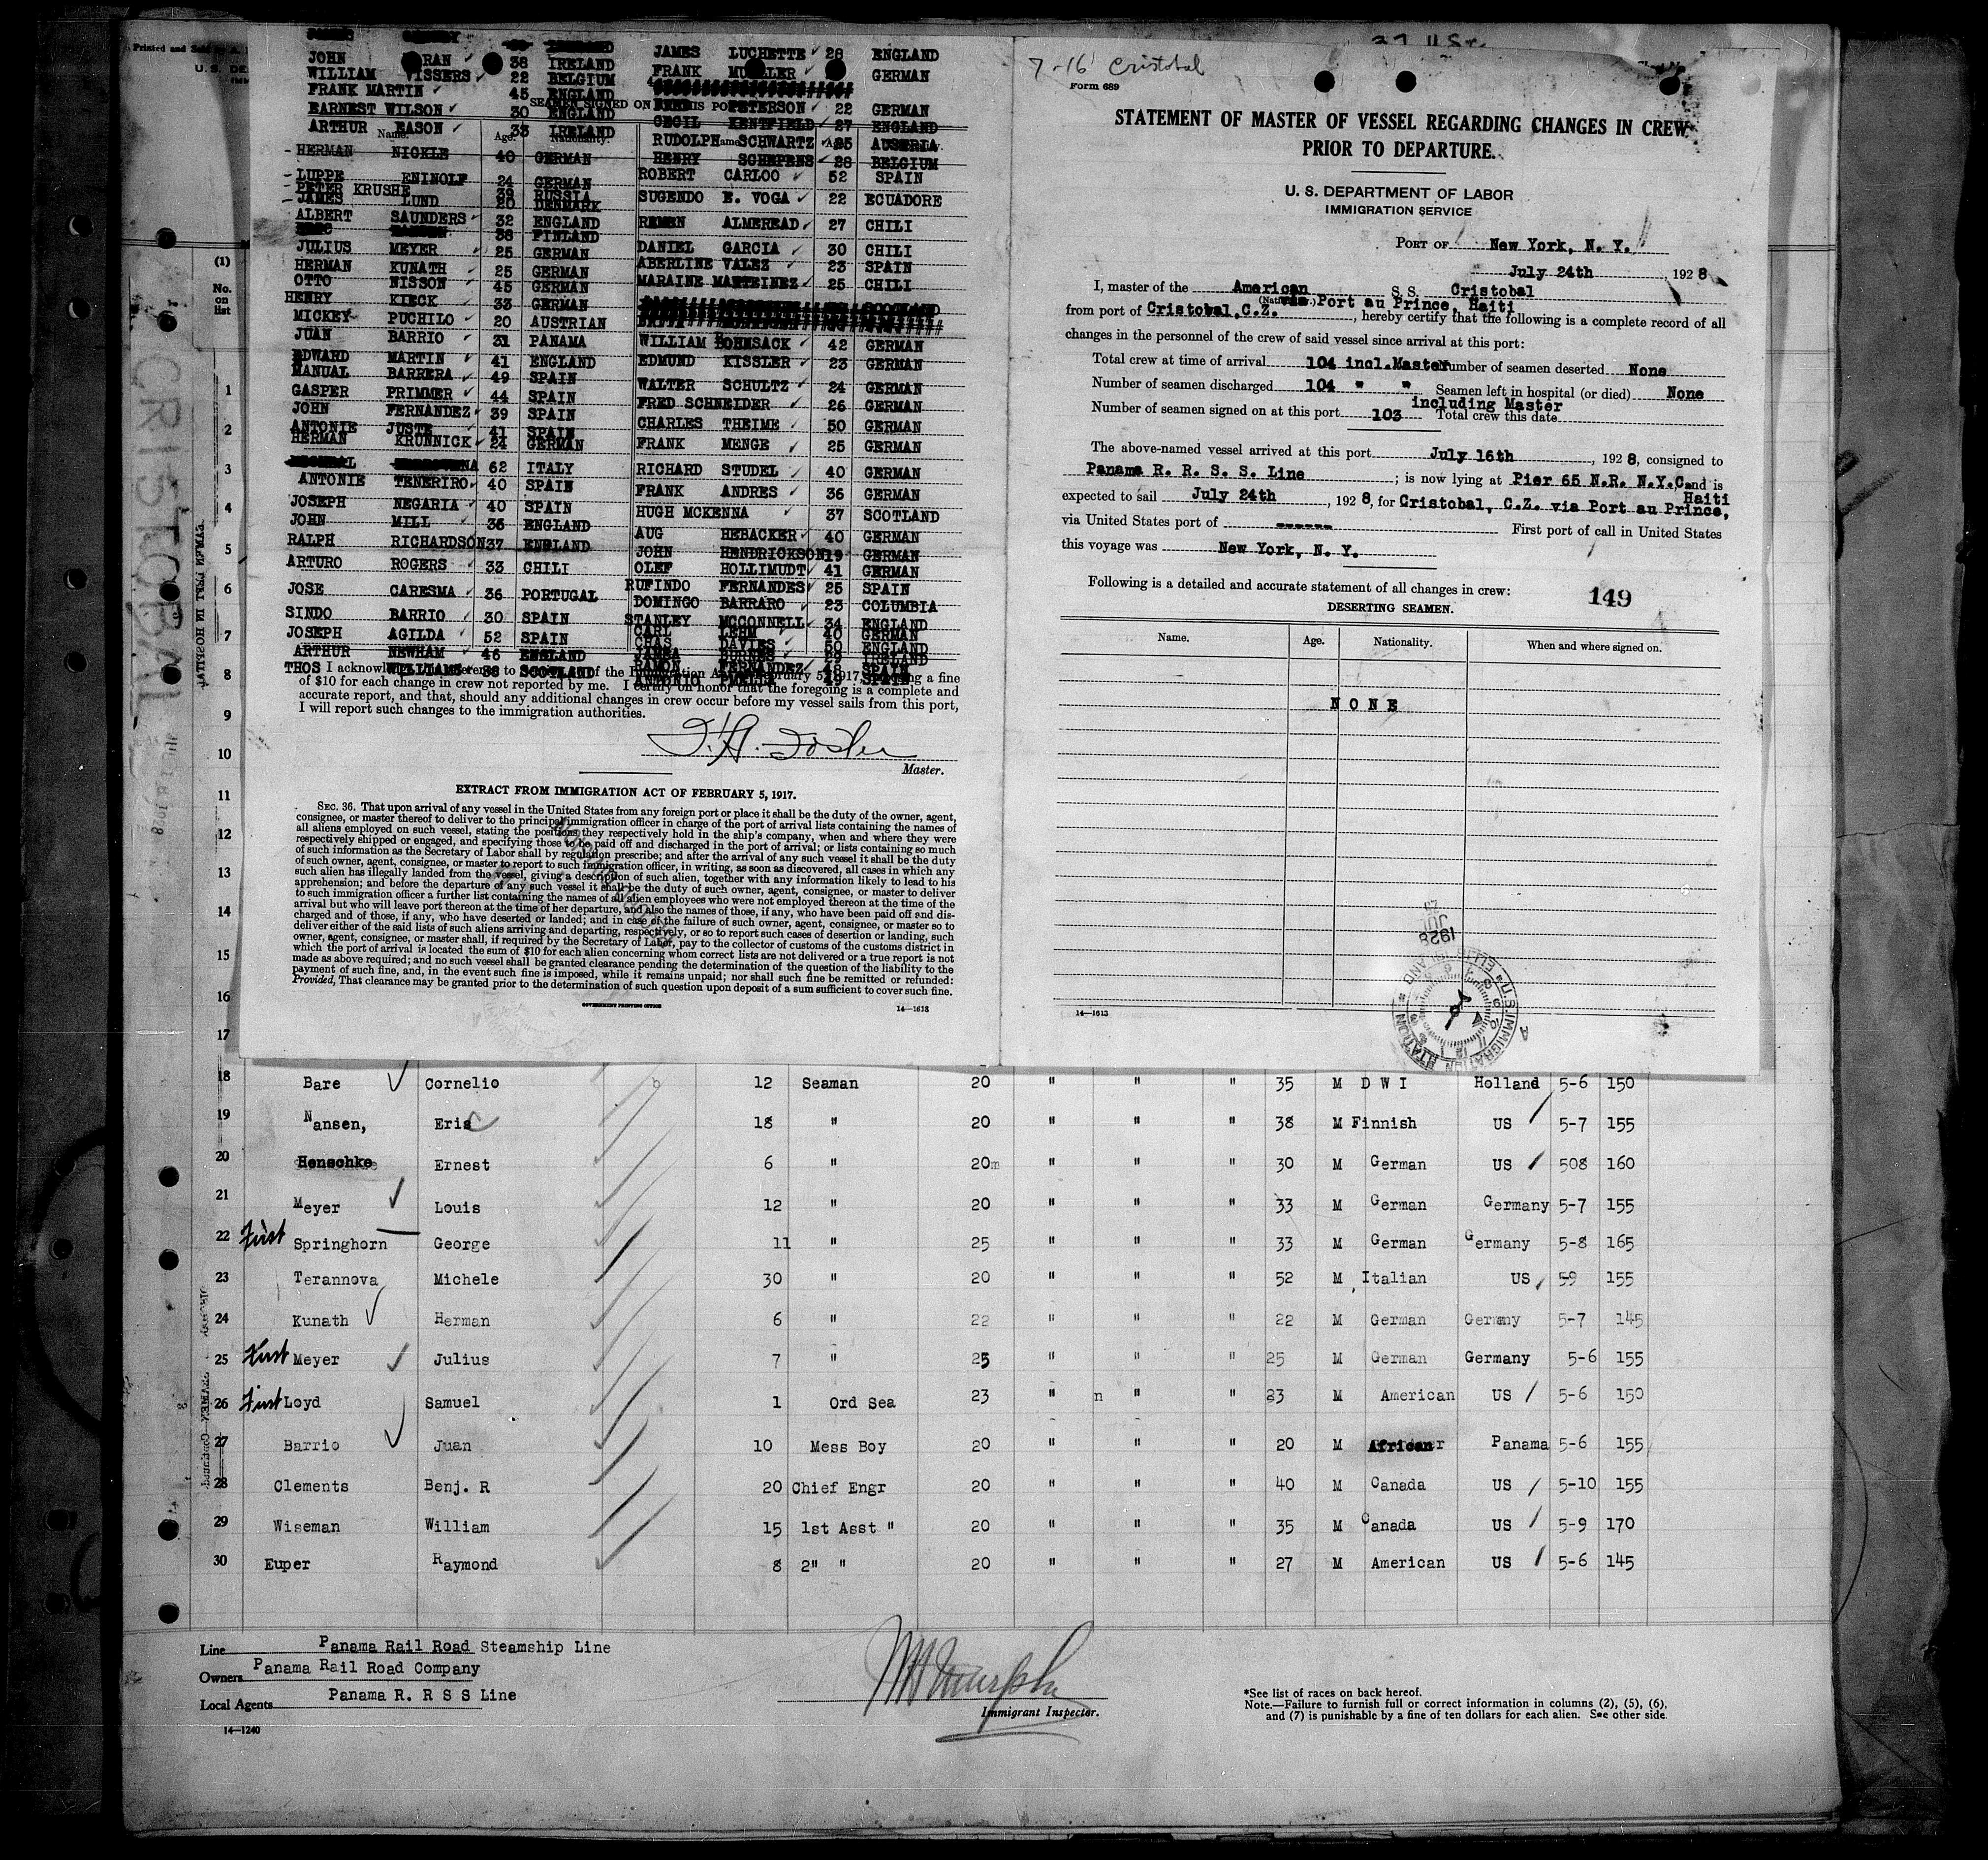 Printed and Sold by
U. S. DE
JOHN RAN 38 IRELAND
WILLIAM VISSERS 22 BELGIUM
FRANK MARTIN 45 ENGLAND
EARNEST WILSON 30 ENGLAND
ARTHUR EASON 33 IRELAND
SEAMEN SIGNED ON
Name. Age. Nationality.
HERMAN NICKLE 40 GERMAN
LUPPE ENINOLF 24 GERMAN
PETER KRUSHE 39 RUSSIA
JAMES LUND 20 DENMARK
ALBERT SAUNDERS 32 ENGLAND
38 FINLAND
JULIUS MEYER 25 GERMAN
HERMAN KUNATH 25 GERMAN
OTTO NISSON 45 GERMAN
HENRY KIECK 33 GERMAN
MICKEY PUCHILO 20 AUSTRIAN
JUAN BARRIO 31 PANAMA
EDWARD MARTIN 41 ENGLAND
MANUAL BARRERA 49 SPAIN
GASPER PRIMMER 44 SPAIN
JOHN FERNANDEZ 39 SPAIN
ANTONIE JUSTE 41 SPAIN
HERMAN KRUNNICK 24 GERMAN
62 ITALY
ANTONIE TENERIRO 40 SPAIN
JOSEPH NEGARIA 40 SPAIN
JOHN MILL 36 ENGLAND
RALPH RICHARDSON 37 ENGLAND
ARTURO ROGERS 33 CHILI
JOSE CARESMA 36 PORTUGAL
SINDO BARRIO 30 SPAIN
JOSEPH AGILDA 52 SPAIN
ARTHUR NEWHAM 46 ENGLAND
THOS WILLIAMS 38 SCOTLAND
JAMES LUCHETTE 28 ENGLAND
FRANK GERMAN
PETERSON 22 GERMAN
CECIL KENTFIELD 27 ENGLAND
RUDOLPH SCHWARTZ 25 AUSTRIA
HENRY SCHEPENS 28 BELGIUM
ROBERT CARLOO 52 SPAIN
SUGENDO E. VOGA 22 ECUADORE
ALMEREAD 27 CHILI
DANIEL GARCIA 30 CHILI
ABERLINE VALEZ 23 SPAIN
MARAINE MARTEINEZ 25 CHILI
WILLIAM BOHNSACK 42 GERMAN
EDMUND KISSLER 23 GERMAN
WALTER SCHULTZ 24 GERMAN
FRED SCHNEIDER 26 GERMAN
CHARLES THEIME 50 GERMAN
FRANK MENGE 25 GERMAN
RICHARD STUDEL 40 GERMAN
FRANK ANDRES 36 GERMAN
HUGH MCKENNA 37 SCOTLAND
AUG HEBACKER 40 GERMAN
JOHN HENDRICKSON 19 GERMAN
OLEF HOLLIMUDT 41 GERMAN
RUFINDO FERNANDES 25 SPAIN
DOMINGO BARRARO 23 COLUMBIA
STANLEY MCCONNELL 34 ENGLAND
CARL LEHM 40 GERMAN
CHAS DAVIES 50 ENGLAND
BURNES IRELAND
RAMON FERNANDEZ 48 SPAIN
ANTONIO 49 SPAIN
I acknow of the Immigration February 5, 1917, a fine
of $10 for each change in crew not reported by me. I certify on honor that the foregoing is a complete and
accurate report, and that, should any additional changes in crew occur before my vessel sails from this port,
I will report such changes to the immigration authorities.
Master.
EXTRACT FROM IMMIGRATION ACT OF FEBRUARY 5, 1917.
SEC. 36. That upon arrival of any vessel in the United States from any foreign port or place it shall be the duty of the owner, agent,
consignee, or master thereof to deliver to the principal immigration officer in charge of the port of arrival lists containing the names of
all aliens employed on such vessel, stating the positions they respectively hold in the ship's company, when and where they were
respectively shipped or engaged, and specifying those to be paid off and discharged in the port of arrival; or lists containing so much
of such information as the Secretary of Labor shall by regulation prescribe; and after the arrival of any such vessel it shall be the duty
of such owner, agent, consignee, or master to report to such immigration officer, in writing, as soon as discovered, all cases in which any
such alien has illegally landed from the vessel, giving a description of such alien, together with any information likely to lead to his
apprehension; and before the departure of any such vessel it shall be the duty of such owner, agent, consignee, or master to deliver
to such immigration officer a further list containing the names of all alien employees who were not employed thereon at the time of the
arrival but who will leave port thereon at the time of her departure, and also the names of those, if any, who have been paid off and dis-
charged and of those, if any, who have deserted or landed; and in case of the failure of such owner, agent, consignee, or master so to
deliver either of the said lists of such aliens arriving and departing, respectively, or so to report such cases of desertion or landing, such
owner, agent, consignee, or master shall, if required by the Secretary of Labor, pay to the collector of customs of the customs district in
which the port of arrival is located the sum of $10 for each alien concerning whom correct lists are not delivered or a true report is not
made as above required; and no such vessel shall be granted clearance pending the determination of the question of the liability to the
payment of such fine, and, in the event such fine is imposed, while it remains unpaid; nor shall such fine be remitted or refunded:
Provided, That clearance may be granted prior to the determination of such question upon deposit of a sum sufficient to cover such fine.
GOVERNMENT PRINTING OFFICE
14—1613
7-16 Cristobal
Form 689
STATEMENT OF MASTER OF VESSEL REGARDING CHANGES IN CREW
PRIOR TO DEPARTURE.
U. S. DEPARTMENT OF LABOR
IMMIGRATION SERVICE
PORT OF New York, N. Y.
July 24th, 1928
I, master of the American S. S. Cristobal
via Port au Prince, Haiti
from port of Cristobal, C.Z., hereby certify that the following is a complete record of all
changes in the personnel of the crew of said vessel since arrival at this port:
Total crew at time of arrival 104 incl. Master number of seamen deserted None
Number of seamen discharged 104 " " Seamen left in hospital (or died) None
including Master
Number of seamen signed on at this port 103 Total crew this date
The above-named vessel arrived at this port July 16th, 1928, consigned to
Panama R. R. S. S. Line; is now lying at Pier 65 N.R. N.Y.C. and is
Haiti
expected to sail July 24th, 1928, for Cristobal, C.Z. via Port au Prince,
via United States port of ------ First port of call in United States
this voyage was New York, N. Y.
Following is a detailed and accurate statement of all changes in crew:
149
DESERTING SEAMEN.
Name. Age. Nationality. When and where signed on.
NONE
JUL 1928
U.S. IMMIGRATION STATION ELLIS ISLAND
14—1613
CRISTOBAL
(1)
No. on list
1
2
3
4
5
6
7
8
9
10
11
12
13
14
15
16
17
18 Bare Cornelio 12 Seaman 20 " " " 35 M D W I Holland 5-6 150
19 Nansen, Eric 18 " 20 " " " 38 M Finnish US 5-7 155
20 Henschke Ernest 6 " 20m " " " 30 M German US 508 160
21 Meyer Louis 12 " 20 " " " 33 M German Germany 5-7 155
22 First Springhorn George 11 " 25 " " " 33 M German Germany 5-8 165
23 Terannova Michele 30 " 20 " " " 52 M Italian US 59 155
24 Kunath Herman 6 " 22 " " " 22 M German Germany 5-7 145
25 First Meyer Julius 7 " 25 " " " 25 M German Germany 5-6 155
26 First Loyd Samuel 1 Ord Sea 23 " n " " 23 M American US 5-6 150
27 Barrio Juan 10 Mess Boy 20 " " " 20 M African Panama 5-6 155
28 Clements Benj. R 20 Chief Engr 20 " " " 40 M Canada US 5-10 155
29 Wiseman William 15 1st Asst " 20 " " " 35 M Canada US 5-9 170
30 Euper Raymond 8 2" " 20 " " " 27 M American US 5-6 145
Line Panama Rail Road Steamship Line
Owners Panama Rail Road Company
Local Agents Panama R. R S S Line
14—1240
Immigrant Inspector.
*See list of races on back hereof.
Note.—Failure to furnish full or correct information in columns (2), (5), (6),
and (7) is punishable by a fine of ten dollars for each alien. See other side.